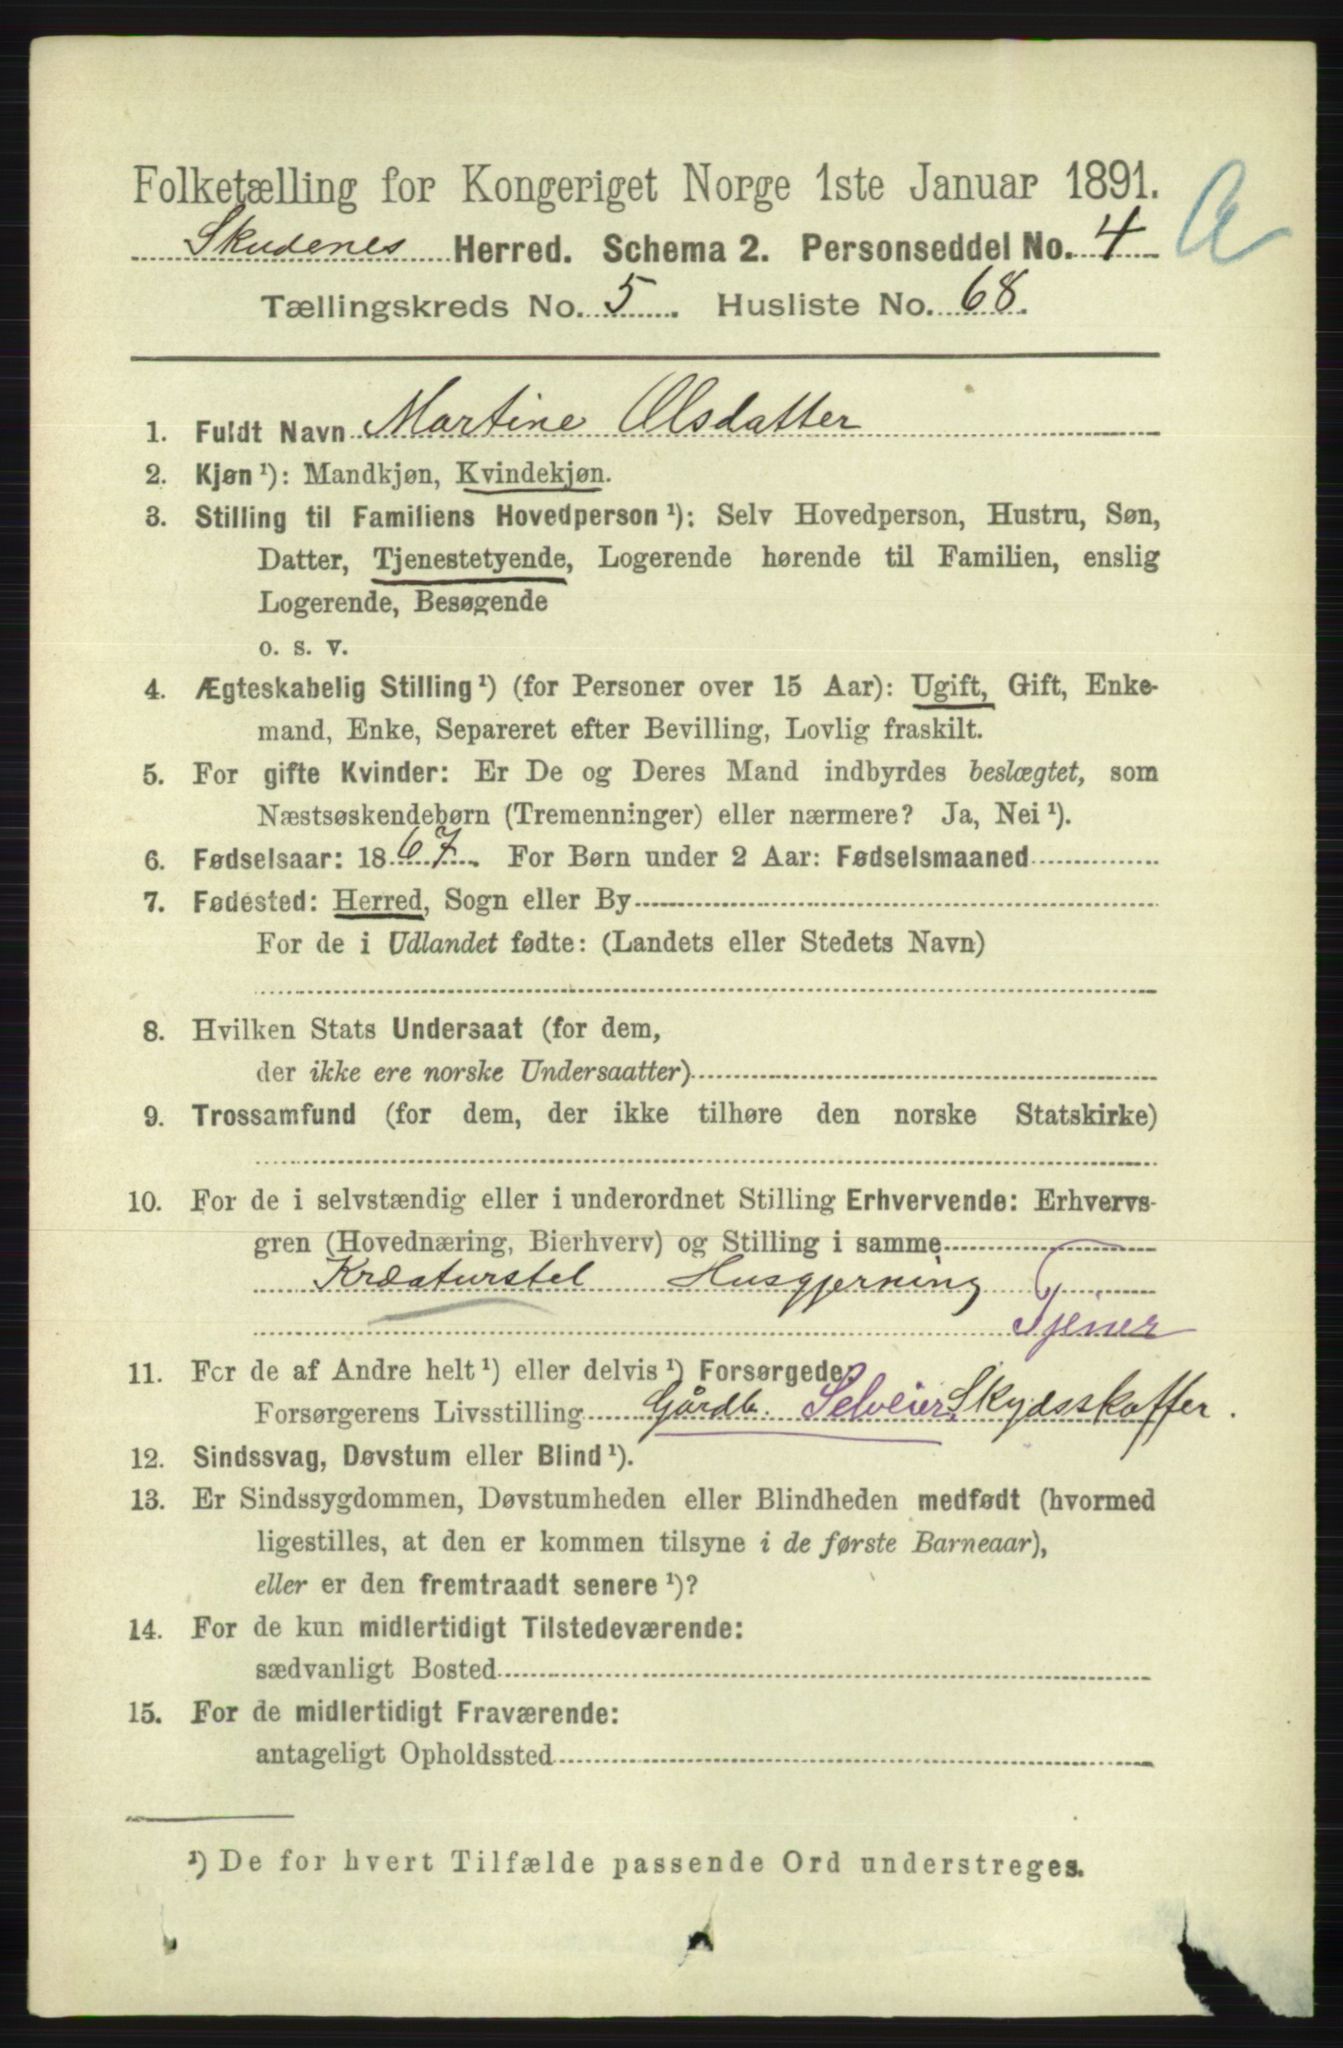 Folketælling for Kongeriget Norge 1ste Januar 1891.
A
Skudenes Herred. Schema 2. Personseddel No. 4
Tællingskreds No. 5. Husliste No. 68.
1. Fuldt Navn Martine Olsdatter
2. Kjøn ¹): Mandkjøn, Kvindekjøn.
3. Stilling til Familiens Hovedperson ¹): Selv Hovedperson, Hustru, Søn,
Datter, Tjenestetyende, Logerende hørende til Familien, enslig
Logerende, Besøgende
o. s. v.
4. Ægteskabelig Stilling ¹) (for Personer over 15 Aar): Ugift, Gift, Enke-
mand, Enke, Separeret efter Bevilling, Lovlig fraskilt.
5. For gifte Kvinder: Er De og Deres Mand indbyrdes beslægtet, som
Næstsøskendebørn (Tremenninger) eller nærmere? Ja, Nei ¹).
6. Fødselsaar: 1867. For Børn under 2 Aar: Fødselsmaaned
7. Fødested: Herred, Sogn eller By
For de i Udlandet fødte: (Landets eller Stedets Navn)
8. Hvilken Stats Undersaat (for dem,
der ikke ere norske Undersaatter)
9. Trossamfund (for dem, der ikke tilhøre den norske Statskirke)
10. For de i selvstændig eller i underordnet Stilling Erhvervende: Erhvervs-
gren (Hovednæring, Bierhverv) og Stilling i samme
Kreaturstel Husgjerning
Tjener
11. For de af Andre helt ¹) eller delvis ¹) Forsørgede:
Forsørgerens Livsstilling Gårdb. Selveier, Skydsskaffer.
12. Sindssvag, Døvstum eller Blind ¹).
13. Er Sindssygdommen, Døvstumheden eller Blindheden medfødt (hvormed
ligestilles, at den er kommen tilsyne i de første Barneaar),
eller er den fremtraadt senere ¹)?
14. For de kun midlertidigt Tilstedeværende:
sædvanligt Bosted
15. For de midlertidigt Fraværende:
antageligt Opholdssted
¹) De for hvert Tilfælde passende Ord understreges.